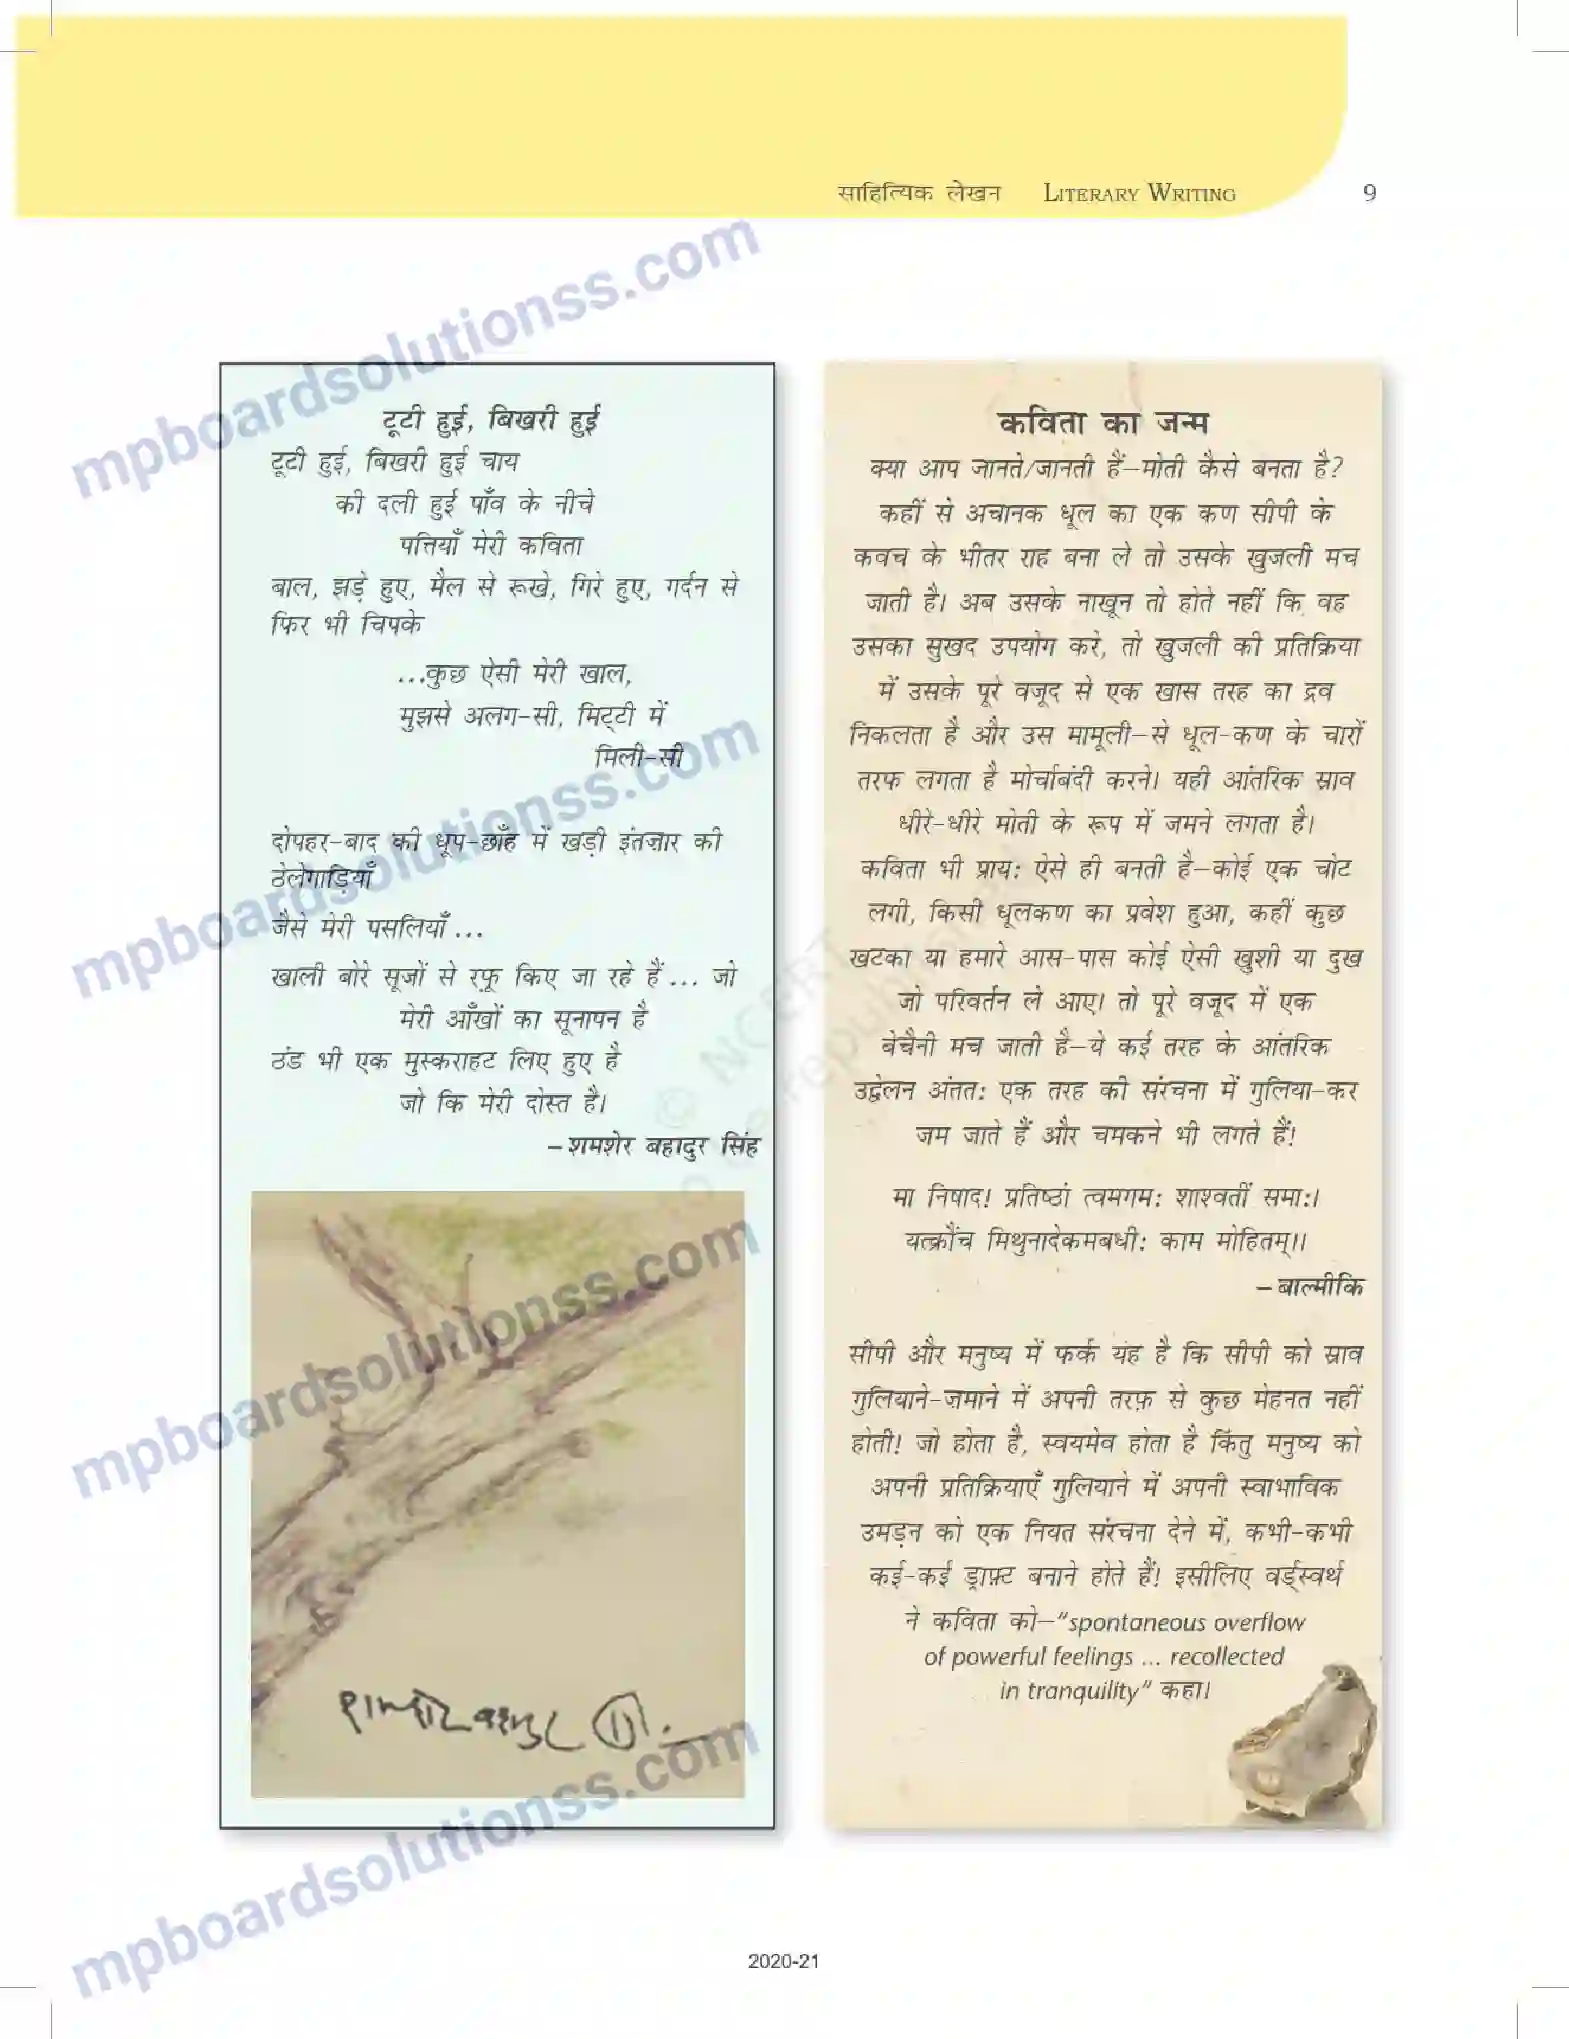 साहित्यिक लेखन LITERARY WRITING 9
टूटी हुई, बिखरी हुई
टूटी हुई, बिखरी हुई चाय
की दली हुई पाँव के नीचे
पत्तियाँ मेरी कविता
बाल, झड़े हुए, मैल से रूखे, गिरे हुए, गर्दन से
फिर भी चिपके
...कुछ ऐसी मेरी खाल,
मुझसे अलग-सी, मिट्टी में
मिली-सी
दोपहर-बाद की धूप-छाँह में खड़ी इंतज़ार की
ठेलेगाड़ियाँ
जैसे मेरी पसलियाँ ...
खाली बोरे सूजों से रफ़ू किए जा रहे हैं ... जो
मेरी आँखों का सूनापन है
ठंड भी एक मुस्कराहट लिए हुए है
जो कि मेरी दोस्त है।
–शमशेर बहादुर सिंह
कविता का जन्म
क्या आप जानते/जानती हैं–मोती कैसे बनता है?
कहीं से अचानक धूल का एक कण सीपी के
कवच के भीतर राह बना ले तो उसके खुजली मच
जाती है। अब उसके नाखून तो होते नहीं कि वह
उसका सुखद उपयोग करे, तो खुजली की प्रतिक्रिया
में उसके पूरे वजूद से एक खास तरह का द्रव
निकलता है और उस मामूली–से धूल-कण के चारों
तरफ लगता है मोर्चाबंदी करने। यही आंतरिक स्राव
धीरे-धीरे मोती के रूप में जमने लगता है।
कविता भी प्राय: ऐसे ही बनती है–कोई एक चोट
लगी, किसी धूलकण का प्रवेश हुआ, कहीं कुछ
खटका या हमारे आस-पास कोई ऐसी खुशी या दुख
जो परिवर्तन ले आए। तो पूरे वजूद में एक
बेचैनी मच जाती है–ये कई तरह के आंतरिक
उद्वेलन अंतत: एक तरह की संरचना में गुलिया-कर
जम जाते हैं और चमकने भी लगते हैं!
मा निषाद! प्रतिष्ठां त्वमगम: शाश्वतीं समा:।
यत्क्रौंच मिथुनादेकमबधी: काम मोहितम्।।
–बाल्मीकि
सीपी और मनुष्य में फर्क यह है कि सीपी को स्राव
गुलियाने-जमाने में अपनी तरफ़ से कुछ मेहनत नहीं
होती! जो होता है, स्वयमेव होता है किंतु मनुष्य को
अपनी प्रतिक्रियाएँ गुलियाने में अपनी स्वाभाविक
उमड़न को एक नियत संरचना देने में, कभी-कभी
कई-कई ड्राफ़्ट बनाने होते हैं! इसीलिए वर्ड्स्वर्थ
ने कविता को–"spontaneous overflow
of powerful feelings ... recollected
in tranquility" कहा।
2020-21
mpboardsolutionss.com
mpboardsolutionss.com
mpboardsolutionss.com
mpboardsolutionss.com
© NCERT